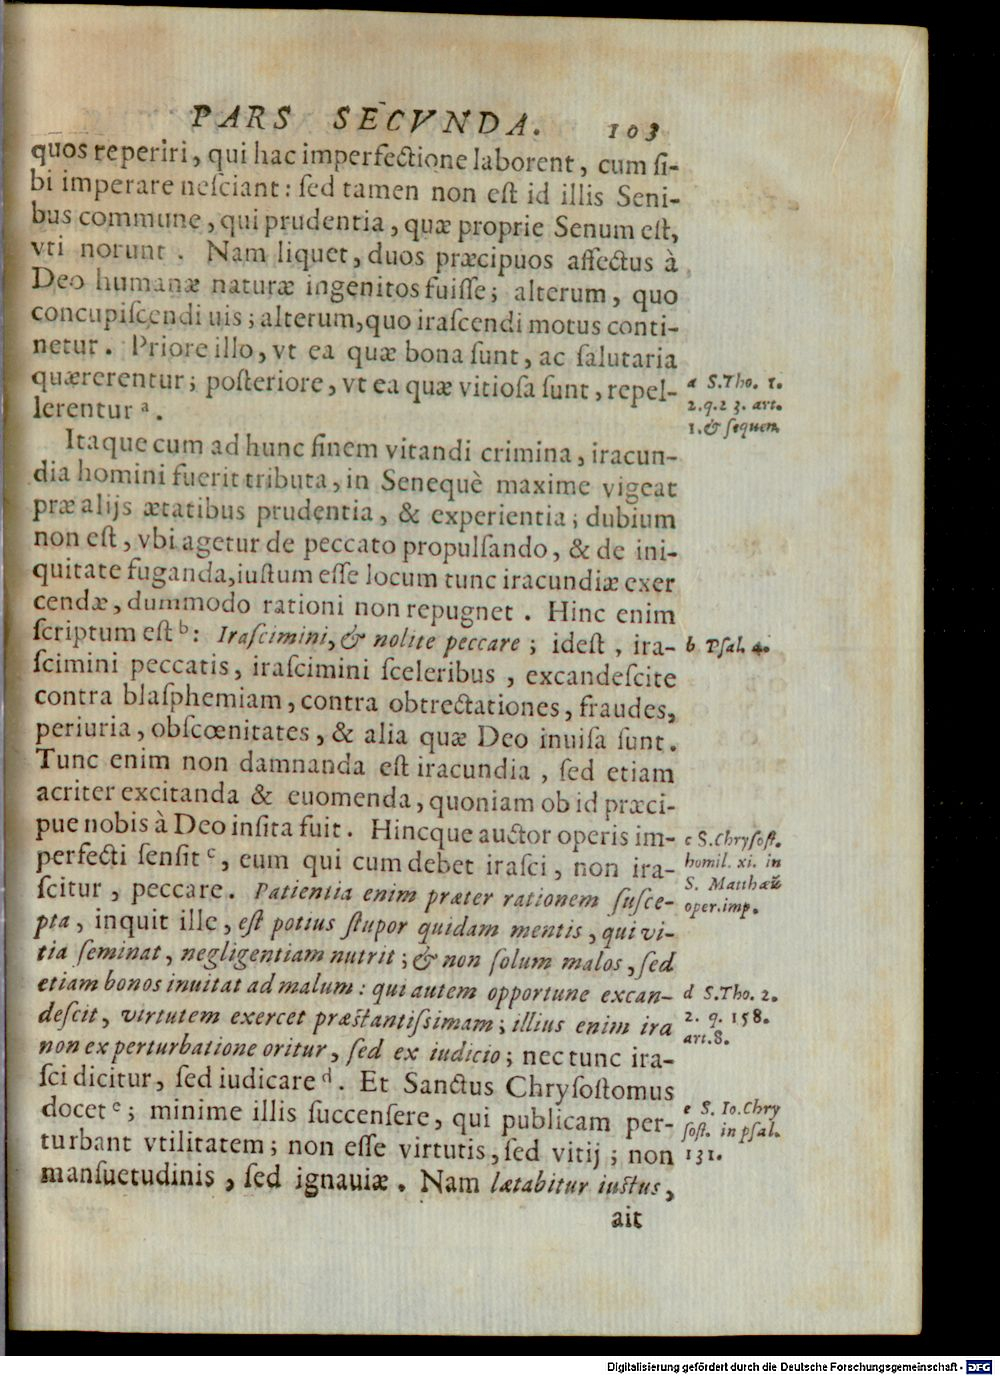 PARS SECVNDA. 103
quos reperiri, qui hac imperfectione laborent, cum ſi-
bi imperare neſciant: ſed tamen non eſt id illis Seni-
bus commune, qui prudentia, quæ proprie Senum eſt,
vti norunt. Nam liquet, duos præcipuos affectus à
Deo humanæ naturæ ingenitos fuiſſe; alterum, quo
concupiſcendi uis; alterum, quo iraſcendi motus conti-
netur. Priore illo, vt ea quæ bona ſunt, ac ſalutaria
quærerentur; poſteriore, vt ea quæ vitioſa ſunt, repel-
lerentur a.
a S.Tho. 1.
2.q.23. art.
1.& ſequen.
Itaque cum ad hunc finem vitandi crimina, iracun-
dia homini fuerit tributa, in Senequè maxime vigeat
præ alijs ætatibus prudentia, & experientia; dubium
non eſt, vbi agetur de peccato propulſando, & de ini-
quitate fuganda, iuſtum eſſe locum tunc iracundiæ exer
cendæ, dummodo rationi non repugnet. Hinc enim
ſcriptum eſt b: Iraſcimini, & nolite peccare; ideſt, ira-
b Pſal. 4.
ſcimini peccatis, iraſcimini ſceleribus, excandeſcite
contra blaſphemiam, contra obtrectationes, fraudes,
periuria, obſcœnitates, & alia quæ Deo inuiſa ſunt.
Tunc enim non damnanda eſt iracundia, ſed etiam
acriter excitanda & euomenda, quoniam ob id præci-
pue nobis à Deo inſita fuit. Hincque auctor operis im-
perfecti ſenſit c, eum qui cum debet iraſci, non ira-
ſcitur, peccare. Patientia enim præter rationem ſuſce-
c S.Chryſoſt.
homil. xi. in
S. Matthæũ
oper.imp.
pta, inquit ille, eſt potius ſtupor quidam mentis, qui vi-
tia ſeminat, negligentiam nutrit; & non ſolum malos, ſed
etiam bonos inuitat ad malum: qui autem opportune excan-
deſcit, virtutem exercet præſtantiſsimam; illius enim ira
non ex perturbatione oritur, ſed ex iudicio; nec tunc ira-
d S.Tho. 2.
2. q. 158.
art.8.
ſci dicitur, ſed iudicare d. Et Sanctus Chryſoſtomus
docet e; minime illis ſuccenſere, qui publicam per-
turbant vtilitatem; non eſſe virtutis, ſed vitij; non
e S. Io.Chry
ſoſt. in pſal.
131.
manſuetudinis, ſed ignauiæ. Nam lætabitur iuſtus,
ait
Digitalisierung gefördert durch die Deutsche Forschungsgemeinschaft - DFG